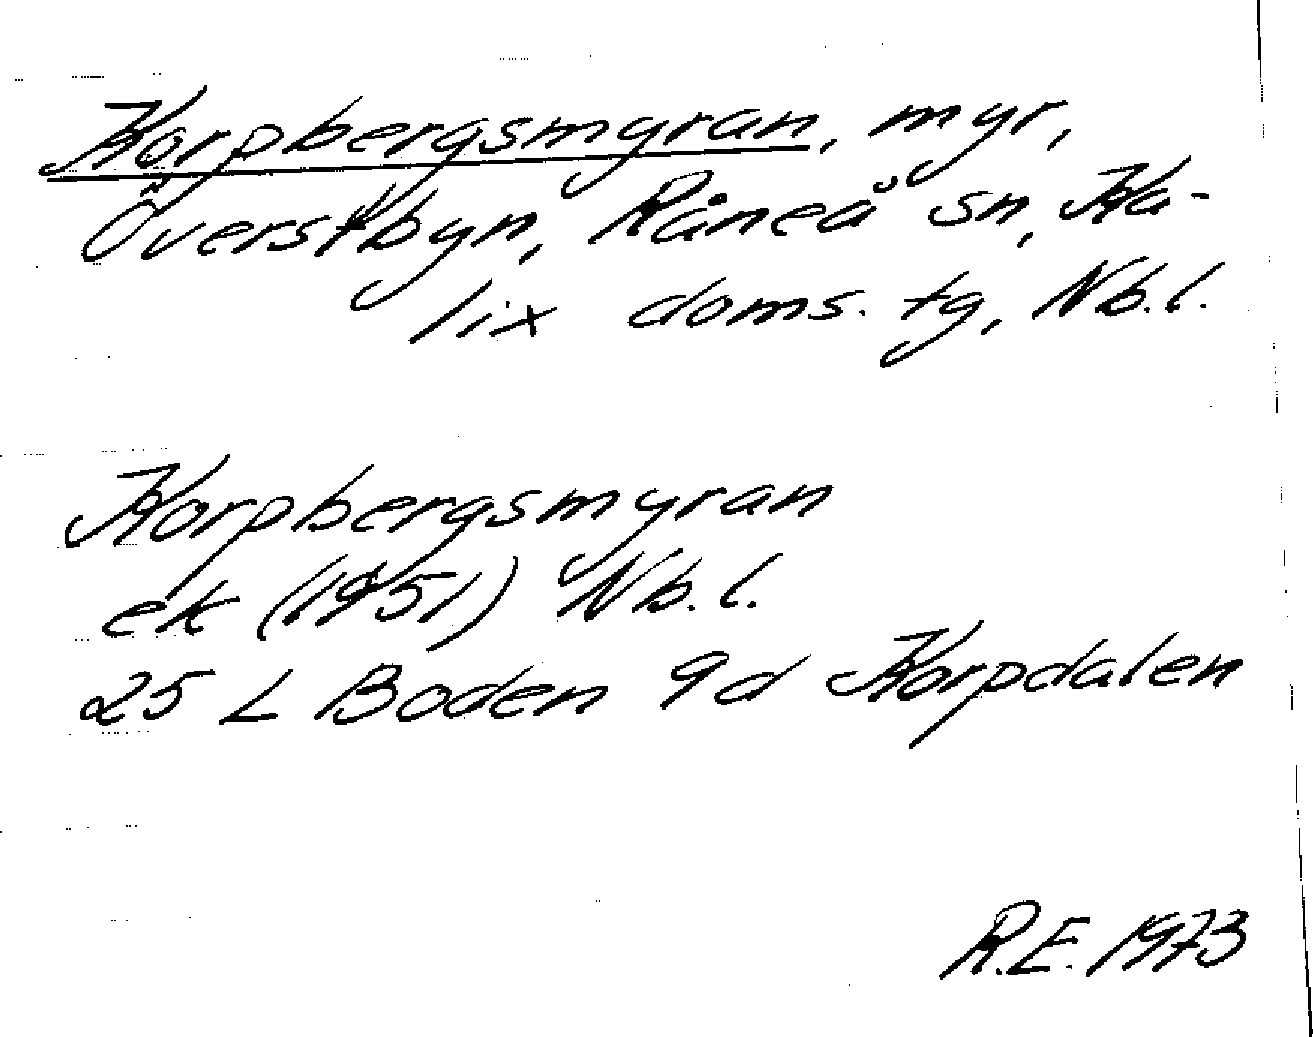 Korpbergsmyran, myr,
Överstbyn, Råneå sn, Ka-
lix doms. tg, Nb.l.
Korpbergsmyran
ek (1951) Nb.l.
25 L Boden 9d Korpdalen
R.E. 1973